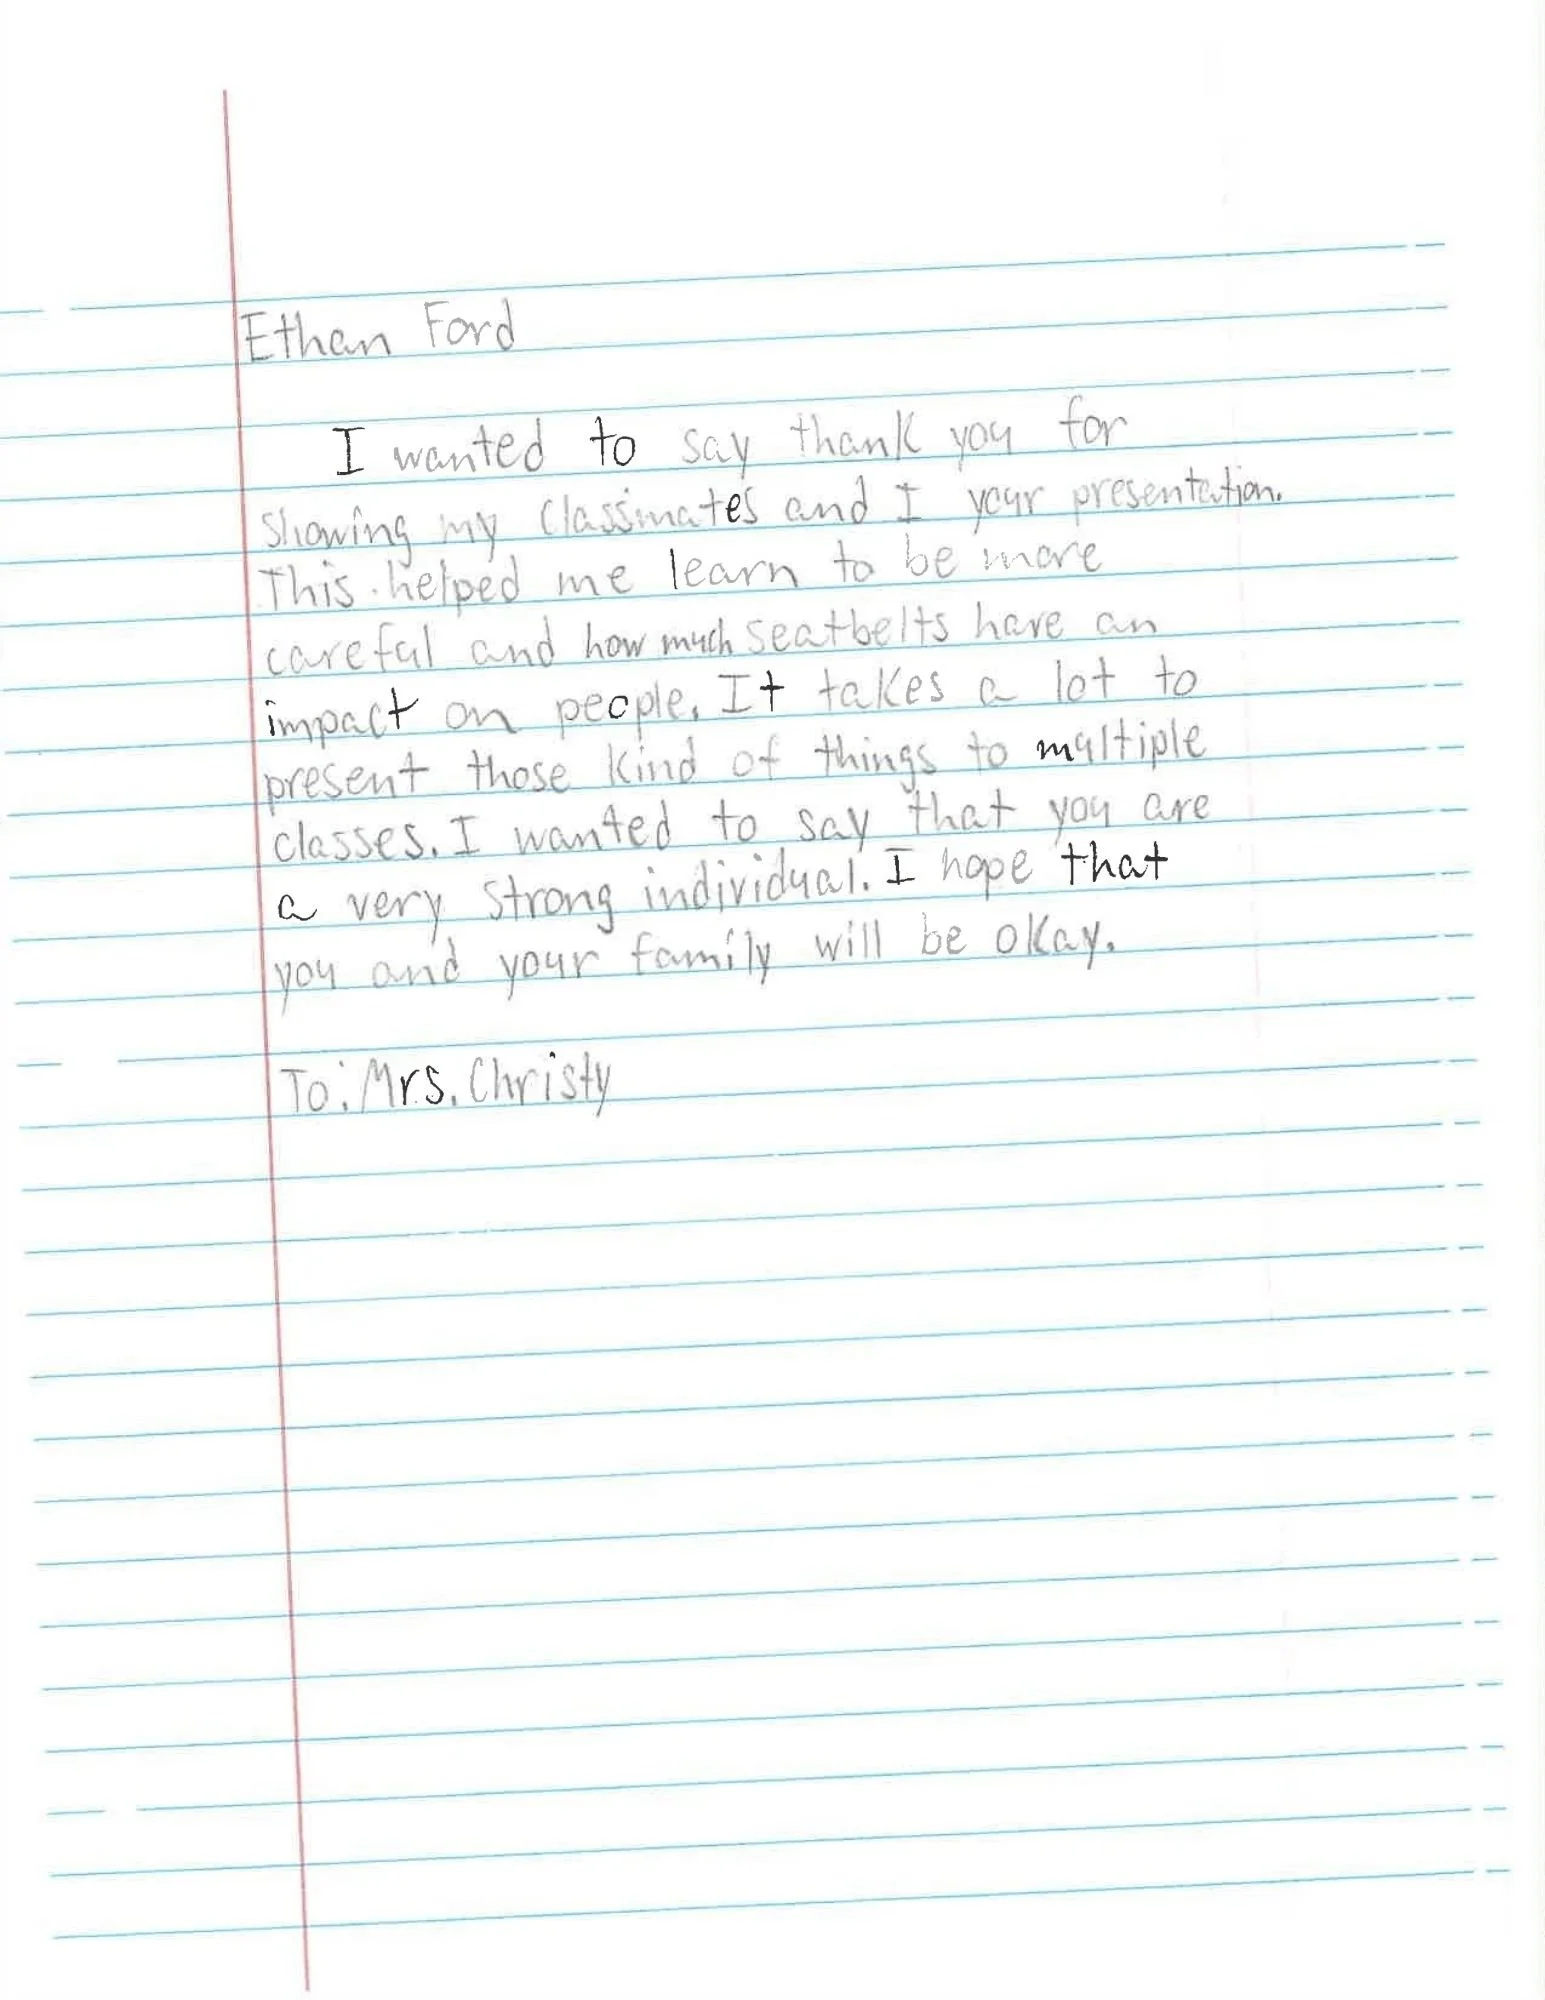 Ethan Ford
I wanted to say thank you for
showing my classmates and I your presentation.
This helped me learn to be more
careful and how much seatbelts have an
impact on people. It takes a lot to
present those kind of things to multiple
classes. I wanted to say that you are
a very strong individual. I hope that
you and your family will be okay.
To: Mrs. Christy